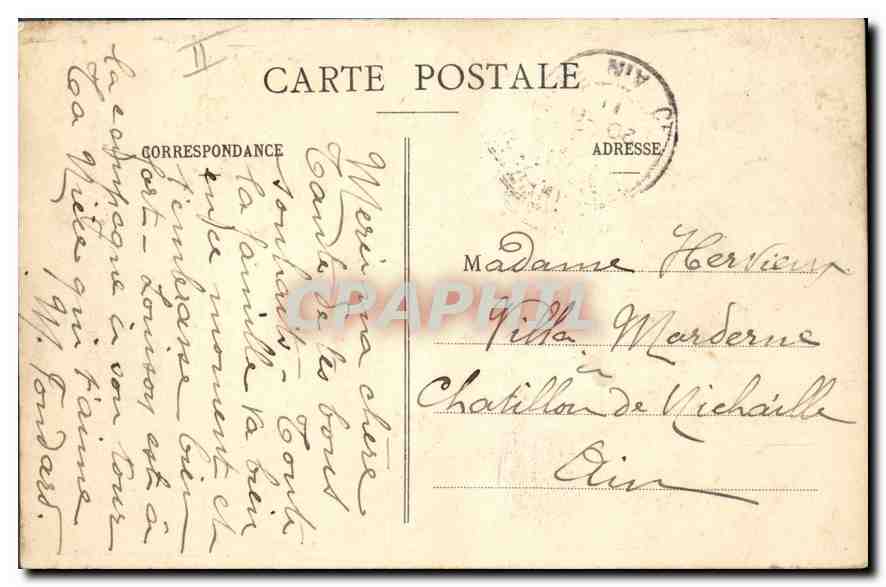 II
CARTE POSTALE
CORRESPONDANCE
ADRESSE
Merci ma chère
Tante de tes bons
souhaits - Toute
la famille va bien
en ce moment et
t'embrasse bien
fort - Louison est à
la campagne à son tour
Ta Nièce qui t'aime
M. Fondard.
Madame Hervieux
Villa Marderne
à
Chatillon de Michaille
Ain
AIN
11
20
CPAPHIL